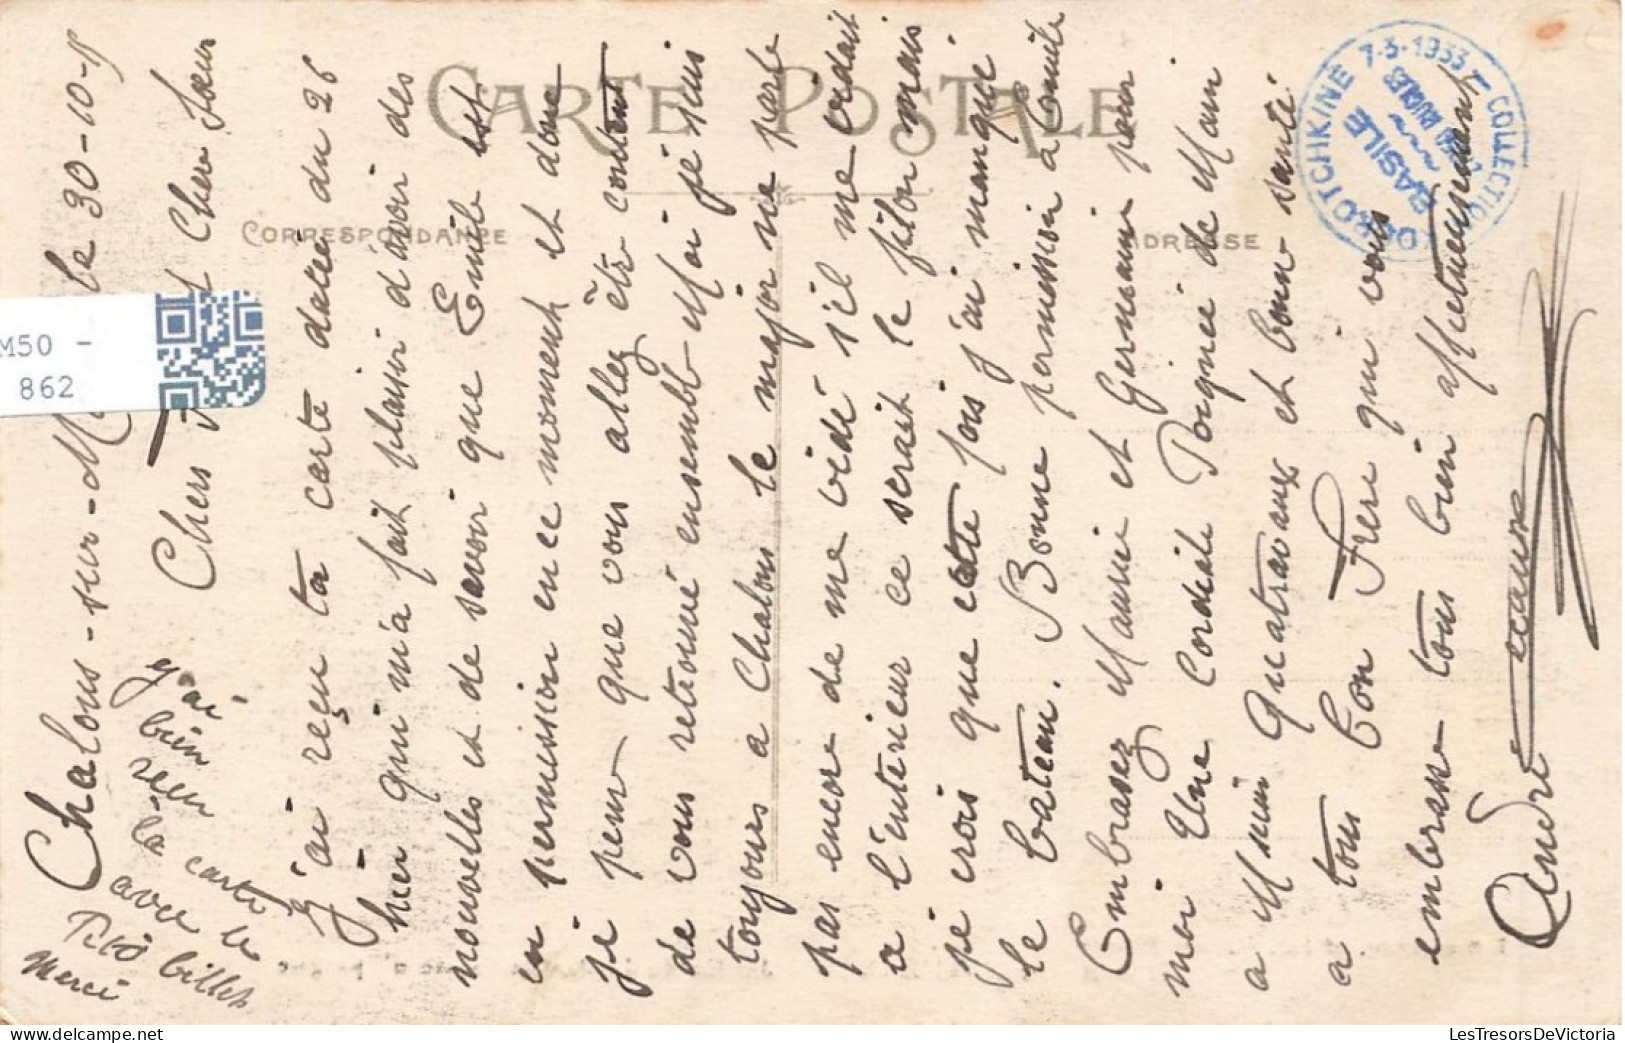 Chalons-sur-M le 30-10-15
Chers et Chère Sœur
J'ai reçu ta carte datée du 26
hier qui m'a fait plaisir d'avoir des
nouvelles et de savoir que Emile est
en permission en ce moment et donc
je pense que vous allez être content
de vous retrouvé ensemble Moi je suis
toujours a Chalons le major ne parle
pas encore de me vidé s'il me vidait
a l'intérieur ce serait le filon mais
je crois que cette fois j'ai manqué
le bateau. Bonne permission à Emile
Embrassez Maurice et Germaine pour
moi Une Cordiale Poignée de Main
a Mr Quatravaux et bonne santé
a tous Ton Frere qui vous
embrasse tous bien affectueusement
André
j'ai
bien
reçu
la carte
avec le
billet
Merci
CARTE POSTALE
CORRESPONDANCE
ADRESSE
M50 -
862
BASILE
7-3-1933
COLLECTION
LesTresorsDeVictoria